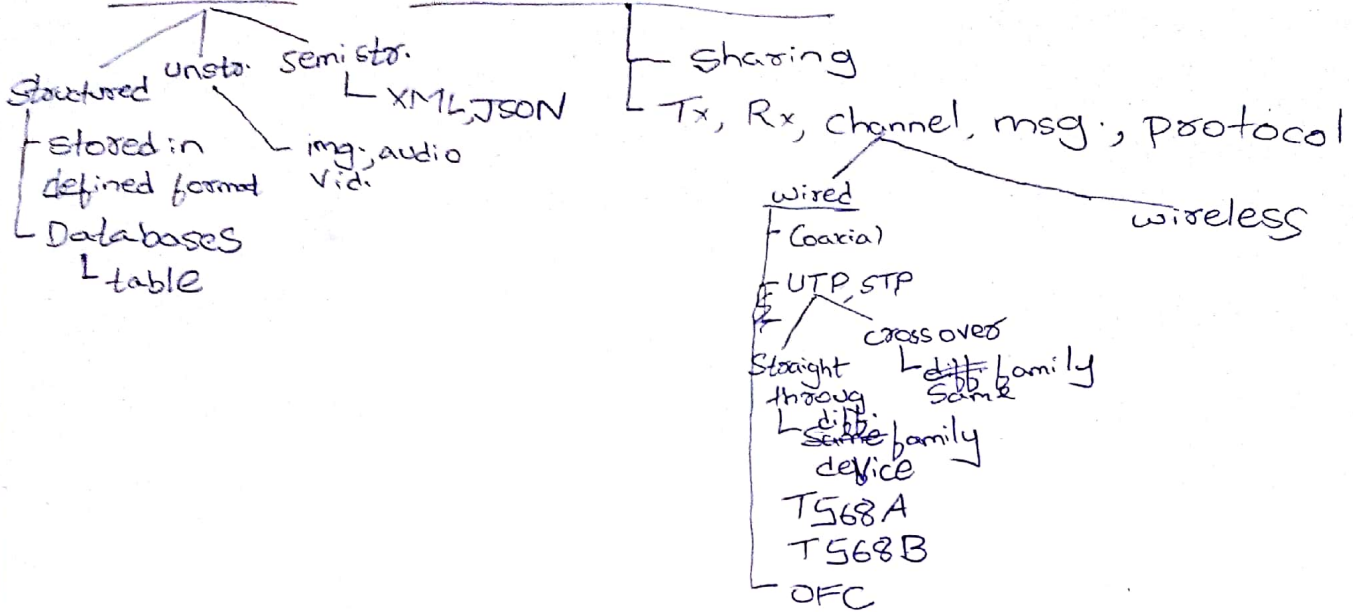 Structured unstr. semi str.
XML, JSON
stored in
defined format
Databases
table
img., audio
Vid.
Sharing
Tx, Rx, channel, msg., protocol
wired
wireless
Coaxial
UTP, STP
Straight
throug
diff.
same family
device
crossover
diff. family
same
T568A
T568B
OFC